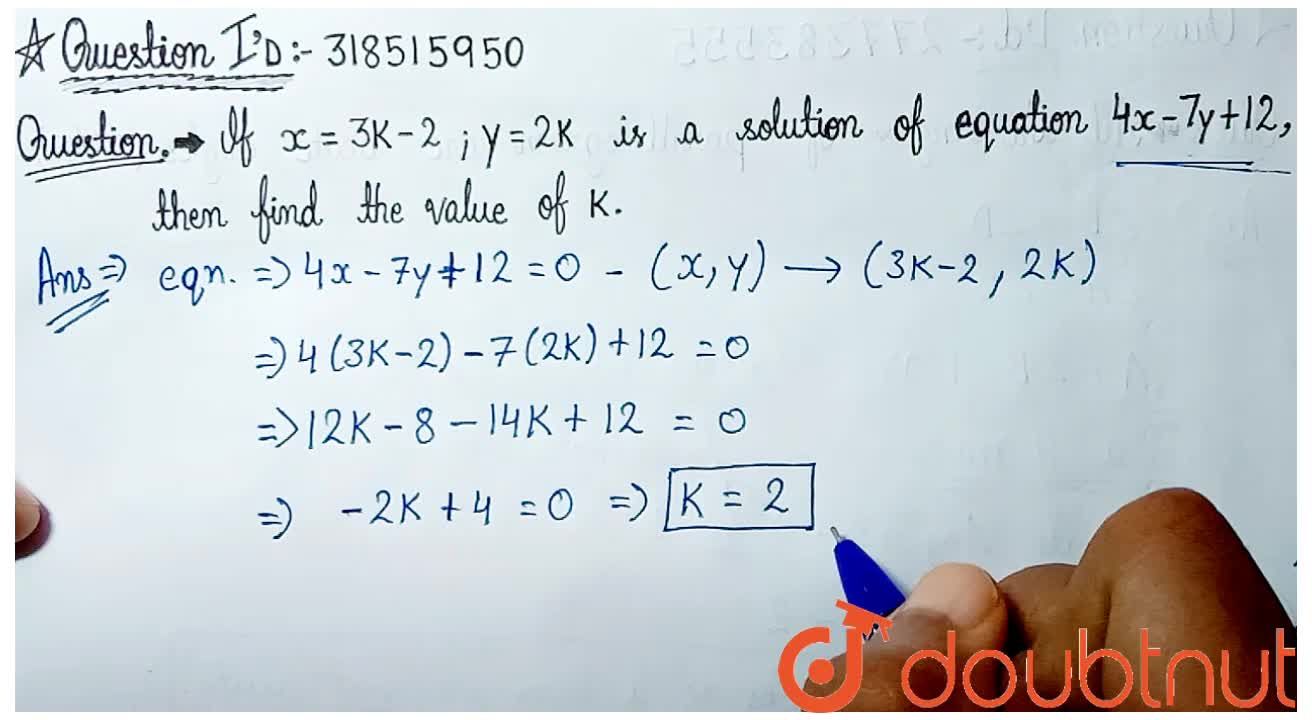 ☆ Question I'D :- 318515950
Question. → If x = 3K - 2 ; y = 2K is a solution of equation 4x - 7y + 12,
then find the value of K.
Ans ⇒ eqn. ⇒ 4x - 7y + 12 = 0 - (x, y) → (3K - 2, 2K)
⇒ 4(3K - 2) - 7(2K) + 12 = 0
⇒ 12K - 8 - 14K + 12 = 0
⇒ -2K + 4 = 0 ⇒ K = 2
doubtnut